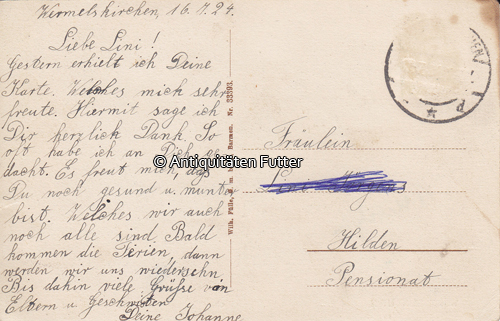 Wermelskirchen, 16.7.24.
Liebe Lini!
Gestern erhielt ich Deine
Karte. Welches mich sehr
freute. Hiermit sage ich
Dir herzlich Dank. So
oft habe ich an Dich ge
dacht. Es freut mich, das
Du noch gesund u. munter
bist. Welches wir auch
noch alle sind. Bald
kommen die Ferien, dann
werden wir uns wiedersehn.
Bis dahin viele Grüße von
Eltern u. Geschwister
Deine Johanne
Wilh. Fülle, Barmen. Nr. 33393
© Antiquitäten Futter
Fräulein
Hilden
Pensionat